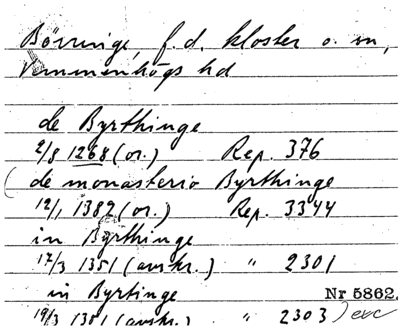 Börringe, f.d. kloster o. sn,
Vemmenhögs hd
de Byrthinge
2/8 1268 (or.) Rep. 376
(de monasterio Byrthinge
12/1 1382 (or.) Rep. 3344
in Byrthinge
17/3 1351 (avskr.) " 2301
in Byrtinge Nr 5862.
19/3 1351 (avskr.) " 2303) exc